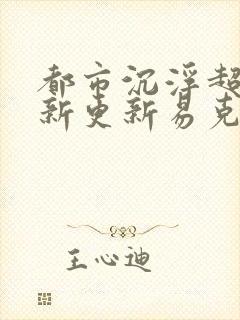 都市沉浮超
新更新易克
王心迪